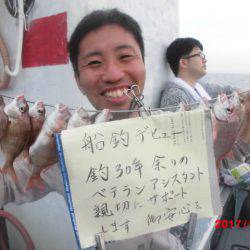 船釣デビュー
釣30年余りの
ベテランアシスタント
親切にサポート
します 御安心を
2017/